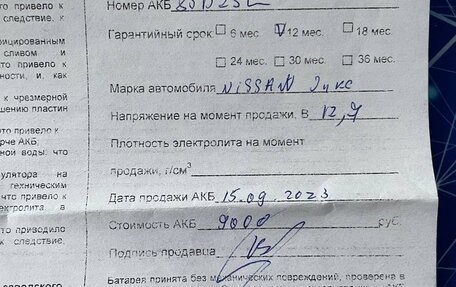 что привело к
следствие, к
фицированным
сливом и
то привело к
ности, и, как
к чрезмерной
ышению пластин
что привело к
рче АКБ;
ной воды, что
улятора на
техническим
что привело к
ектролита, а
что приводило
к следствие,
Номер АКБ 80D23L
Гарантийный срок 6 мес. 12 мес. 18 мес.
24 мес. 30 мес. 36 мес.
Марка автомобиля NISSAN Жукс
Напряжение на момент продажи, В 12,7
Плотность электролита на момент
продажи, г/см³
Дата продажи АКБ 15.09.2023
Стоимость АКБ 9000 руб.
Подпись продавца
Батарея принята без механических повреждений, проверена в